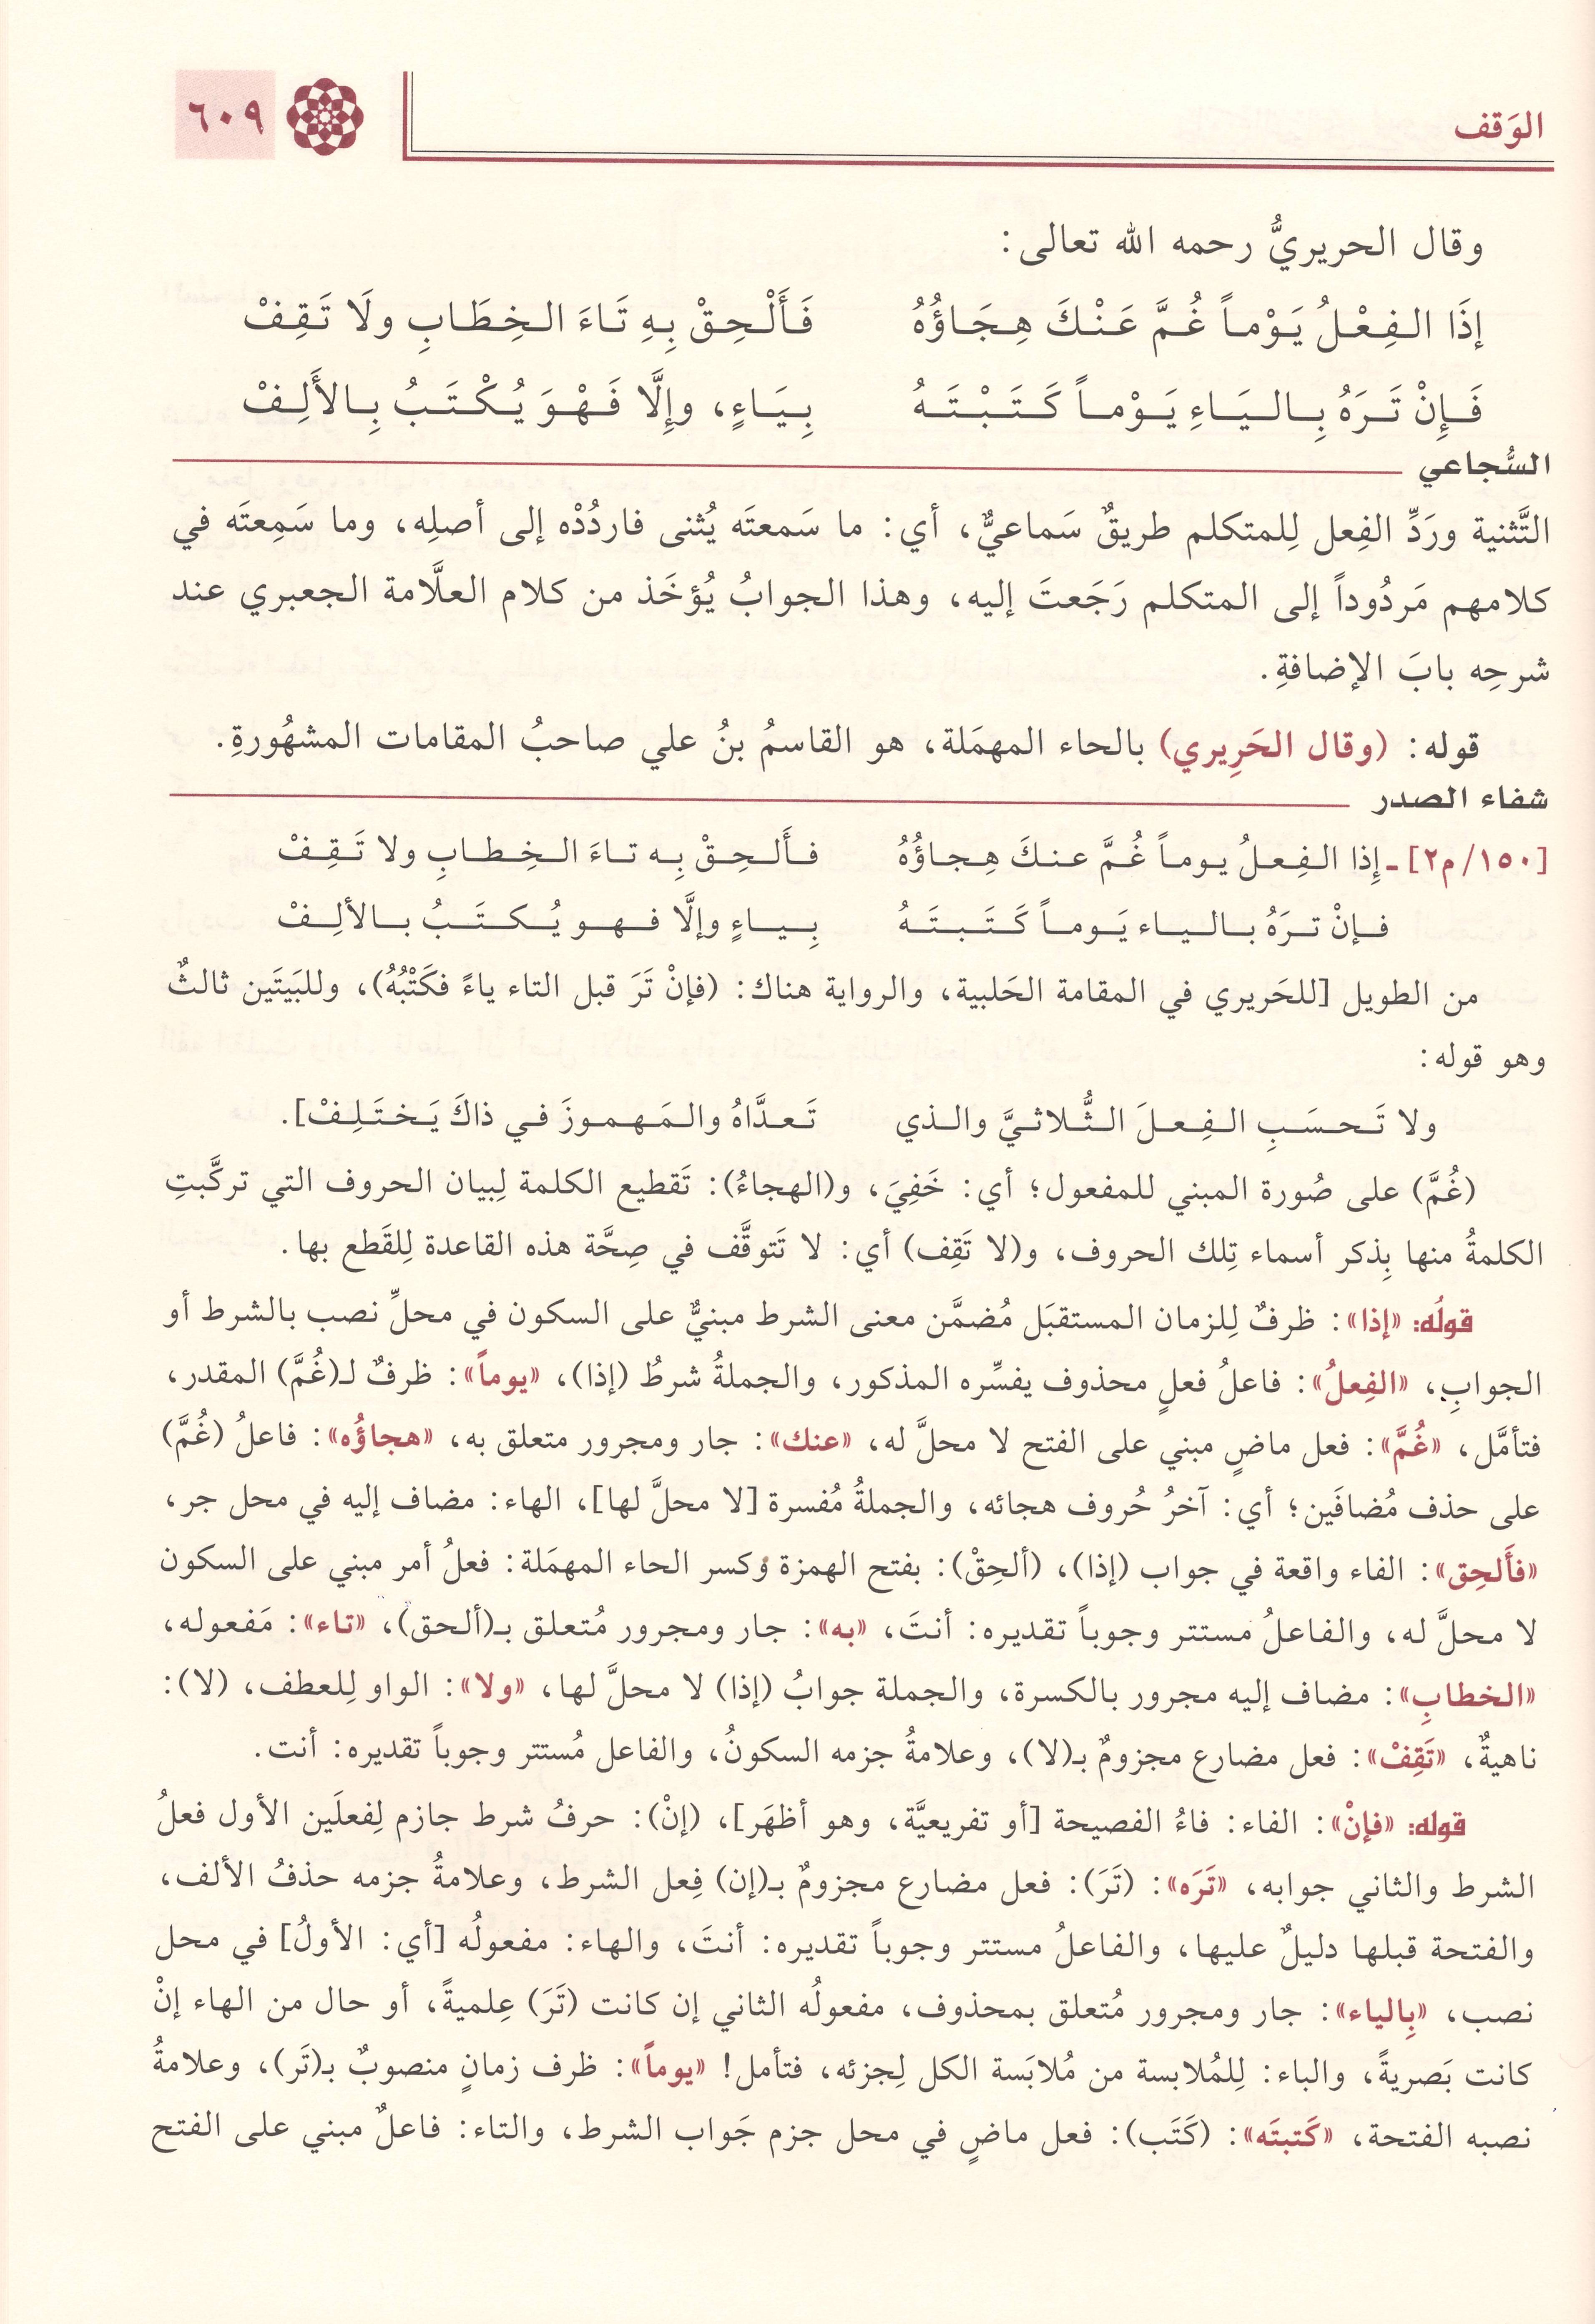 الوَقف
٦٠٩
وقال الحريريُّ رحمه الله تعالى:
إذَا الفِعْلُ يَوْماً غُمَّ عَنْكَ هِجَاؤُهُ فَأَلْحِقْ بِهِ تَاءَ الخِطَابِ ولَا تَقِفْ
فَإِنْ تَرَهُ بِاليَاءِ يَوْماً كَتَبْتَهُ بِيَاءٍ، وإِلَّا فَهْوَ يُكْتَبُ بِالأَلِفْ
السُّجاعي
التَّثنية ورَدِّ الفِعل لِلمتكلم طريقٌ سَماعيٌّ، أي: ما سَمعتَه يُثنى فاردُدْه إلى أصلِه، وما سَمِعتَه في
كلامهم مَردُوداً إلى المتكلم رَجَعتَ إليه، وهذا الجوابُ يُؤخَذ من كلام العلَّامة الجعبري عند
شرحِه بابَ الإضافةِ.
قوله: (وقال الحَرِيري) بالحاء المهمَلة، هو القاسمُ بنُ علي صاحبُ المقامات المشهُورةِ.
شفاء الصدر
[١٥٠/م٢] ـ إِذا الفِعلُ يوماً غُمَّ عنكَ هِجاؤُهُ فأَلحِقْ بِه تاءَ الخِطابِ ولا تَقِفْ
فإنْ ترَهُ بالياء يَوماً كَتَبتَهُ بِياءٍ وإلَّا فهو يُكتَبُ بالألِفْ
من الطويل [للحَريري في المقامة الحَلبية، والرواية هناك: (فإنْ تَرَ قبل التاء ياءً فكَتْبُهُ)، وللبَيتَين ثالثٌ
وهو قوله:
ولا تَحسَبِ الفِعلَ الثُّلاثيَّ والذي تَعدَّاهُ والمَهموزَ في ذاكَ يَختَلِفْ].
(غُمَّ) على صُورة المبني للمفعول؛ أي: خَفِيَ، و(الهجاءُ): تَقطيع الكلمة لِبيان الحروف التي تركَّبتِ
الكلمةُ منها بِذكر أسماء تِلك الحروف، و(لا تَقِف) أي: لا تَتوقَّف في صِحَّة هذه القاعدة لِلقَطع بها.
قولُه: «إذا»: ظرفٌ لِلزمان المستقبَل مُضمَّن معنى الشرط مبنيٌّ على السكون في محلِّ نصب بالشرط أو
الجوابِ، «الفِعلُ»: فاعلُ فعلٍ محذوف يفسِّره المذكور، والجملةُ شرطُ (إذا)، «يوماً»: ظرفٌ لـ(غُمَّ) المقدر،
فتأمَّل، «غُمَّ»: فعل ماضٍ مبني على الفتح لا محلَّ له، «عنك»: جار ومجرور متعلق به، «هجاؤُه»: فاعلُ (غُمَّ)
على حذف مُضافَين؛ أي: آخرُ حُروف هجائه، والجملةُ مُفسرة [لا محلَّ لها]، الهاء: مضاف إليه في محل جر،
«فأَلحِق»: الفاء واقعة في جواب (إذا)، (ألحِقْ): بفتح الهمزة وكسر الحاء المهمَلة: فعلُ أمر مبني على السكون
لا محلَّ له، والفاعلُ مستتر وجوباً تقديره: أنتَ، «به»: جار ومجرور مُتعلق بـ(ألحق)، «تاء»: مَفعوله،
«الخطابِ»: مضاف إليه مجرور بالكسرة، والجملة جوابُ (إذا) لا محلَّ لها، «ولا»: الواو لِلعطف، (لا):
ناهيةٌ، «تَقِفْ»: فعل مضارع مجزومٌ بـ(لا)، وعلامةُ جزمه السكونُ، والفاعل مُستتر وجوباً تقديره: أنت.
قوله: «فإنْ»: الفاء: فاءُ الفصيحة [أو تفريعيَّة، وهو أظهَر]، (إنْ): حرفُ شرط جازم لِفعلَين الأول فعلُ
الشرط والثاني جوابه، «تَرَه»: (تَرَ): فعل مضارع مجزومٌ بـ(إن) فِعل الشرط، وعلامةُ جزمه حذفُ الألف،
والفتحة قبلها دليلٌ عليها، والفاعلُ مستتر وجوباً تقديره: أنتَ، والهاء: مفعولُه [أي: الأولُ] في محل
نصب، «بِالياء»: جار ومجرور مُتعلق بمحذوف، مفعولُه الثاني إن كانت (تَرَ) عِلميةً، أو حال من الهاء إنْ
كانت بَصريةً، والباء: لِلمُلابسة من مُلابَسة الكل لِجزئه، فتأمل! «يوماً»: ظرف زمانٍ منصوبٌ بـ(تَر)، وعلامةُ
نصبه الفتحة، «كَتبتَه»: (كَتَب): فعل ماضٍ في محل جزم جَواب الشرط، والتاء: فاعلٌ مبني على الفتح